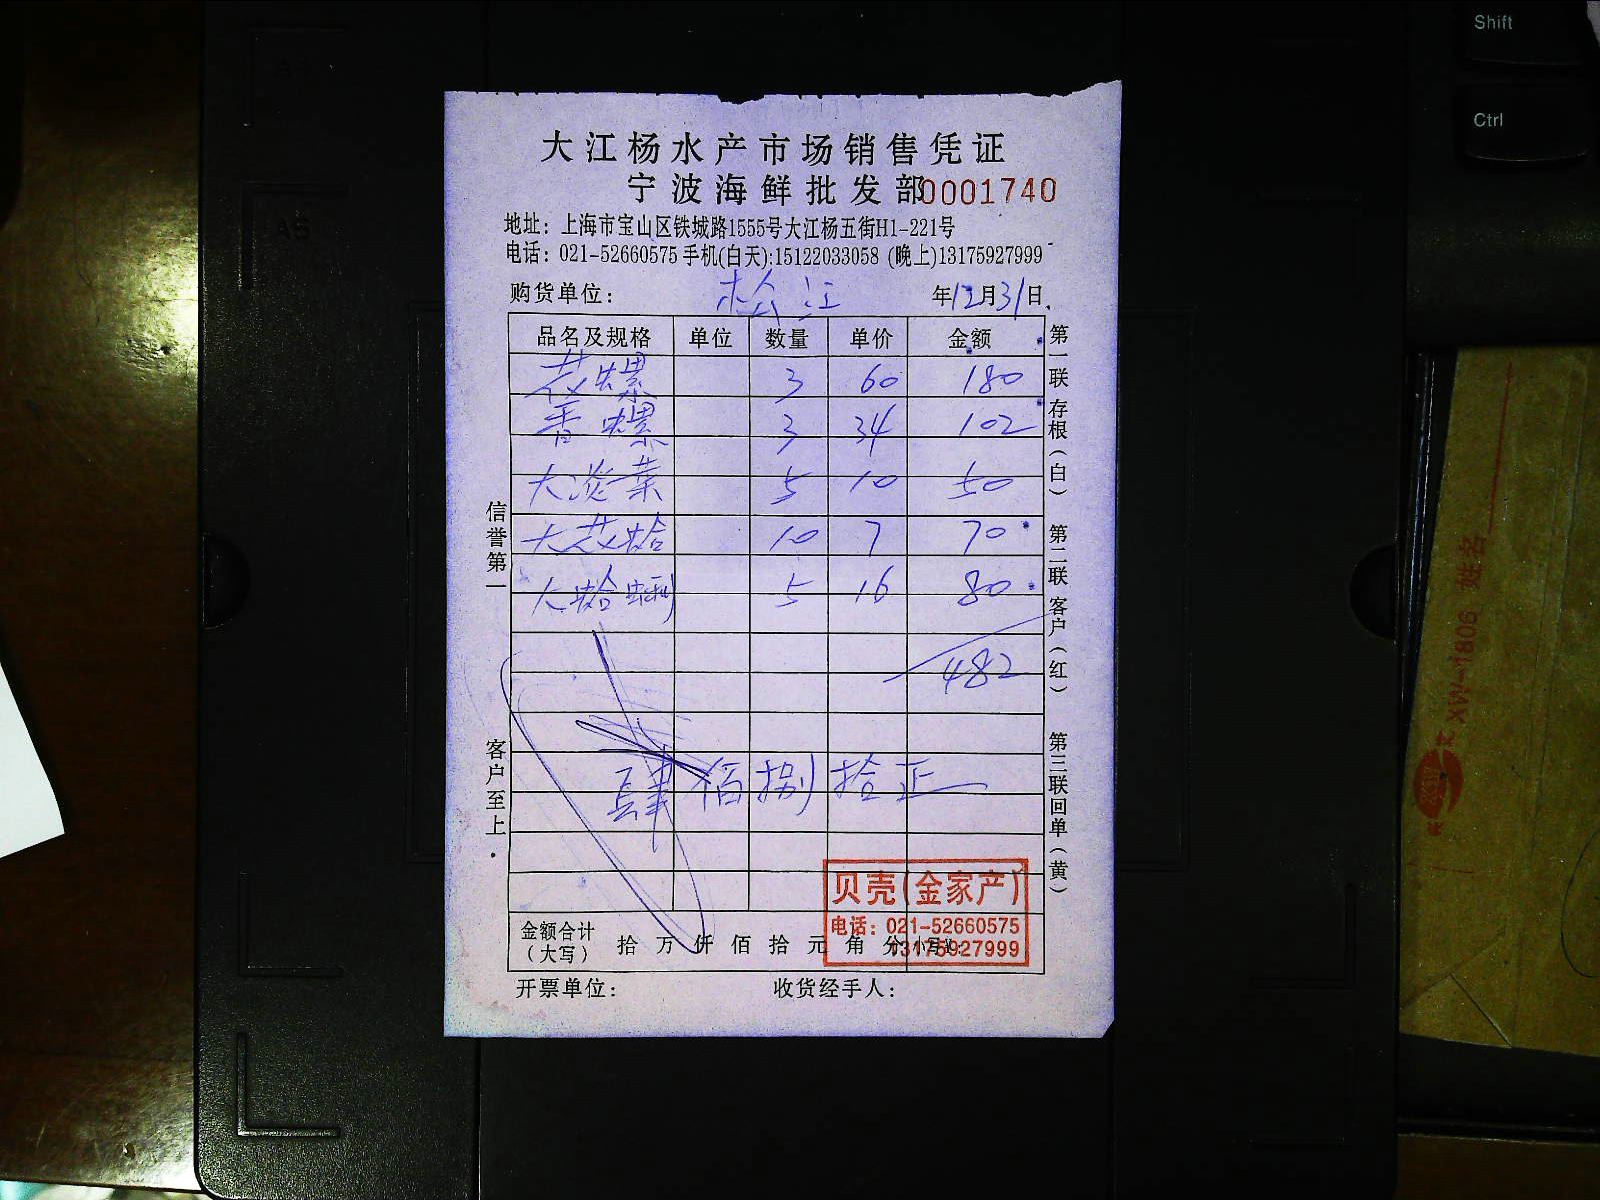 大江杨水产市场销售凭证
宁波海鲜批发部0001740
地址：上海市宝山区铁城路1555号大江杨五街H1-221号
电话：021-52660575 手机(白天):15122033058 (晚上)13175927999
购货单位： 松江 年12月31日
品名及规格 单位 数量 单价 金额
花螺 3 60 180
香螺 3 34 102
大淡菜 5 10 50
大花蛤 10 7 70
大蛤蜊 5 16 80
482
肆佰捌拾正
信誉第一
客户至上
第一联存根（白）
第二联客户（红）
第三联回单（黄）
贝壳(金家产)
电话：021-52660575
13175927999
金额合计（大写） 拾 万 仟 佰 拾 元 角 分
开票单位： 收货经手人：
Shift
Ctrl
A5
XW-1806 姓名